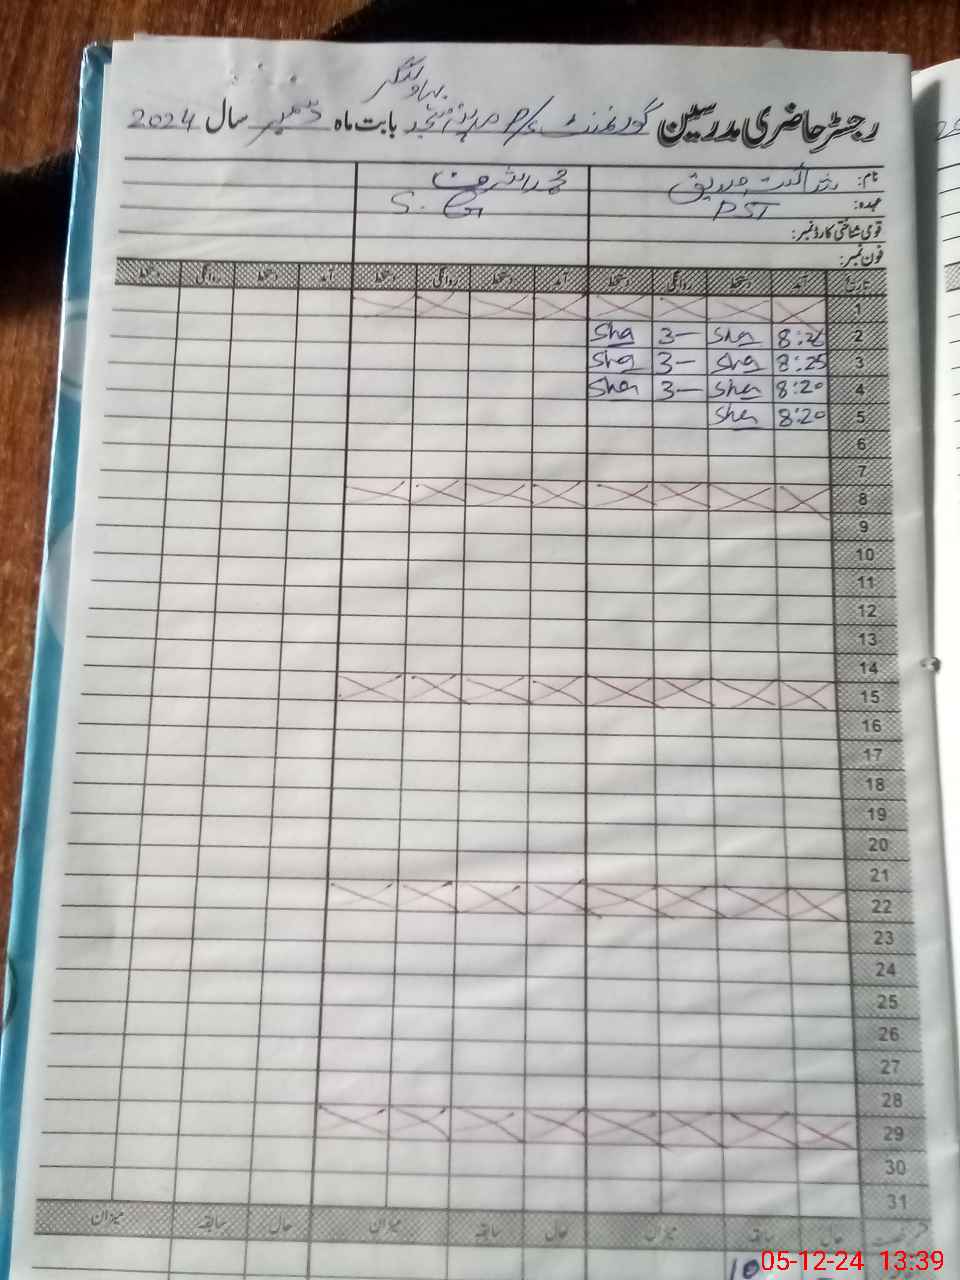 رجسٹر حاضری مدرسین گورنمنٹ P/S مدینہ مسجد بہاولنگر بابت ماہ دسمبر سال 2024
نام: صدیق محمد اشرف
عہدہ: PST S. G
قومی شناختی کارڈ نمبر:
فون نمبر:
تاریخ آمد دستخط روانگی دستخط آمد دستخط روانگی دستخط آمد دستخط روانگی دستخط
1
2 Sha 3— Sha
3 8:25 Sha 3— Sha
4 8:20 Sha 3— Sha
5 8:20 Sha
6
7
8
9
10
11
12
13
14
15
16
17
18
19
20
21
22
23
24
25
26
27
28
29
30
31
حال سابقہ میزان حال سابقہ میزان حال سابقہ میزان
10
05-12-24 13:39